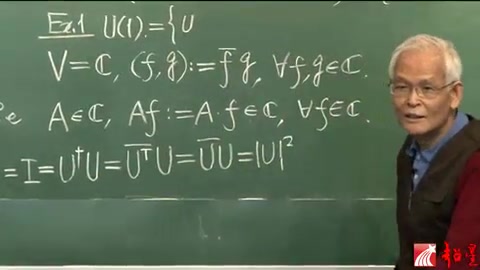 Ex.1 U(1):={U
V=ℂ, (f,g):=f̅g, ∀f,g∈ℂ.
A∈ℂ, Af:=A·f∈ℂ, ∀f∈ℂ.
=I=U†U=U̅ᵀU=U̅U=|U|²